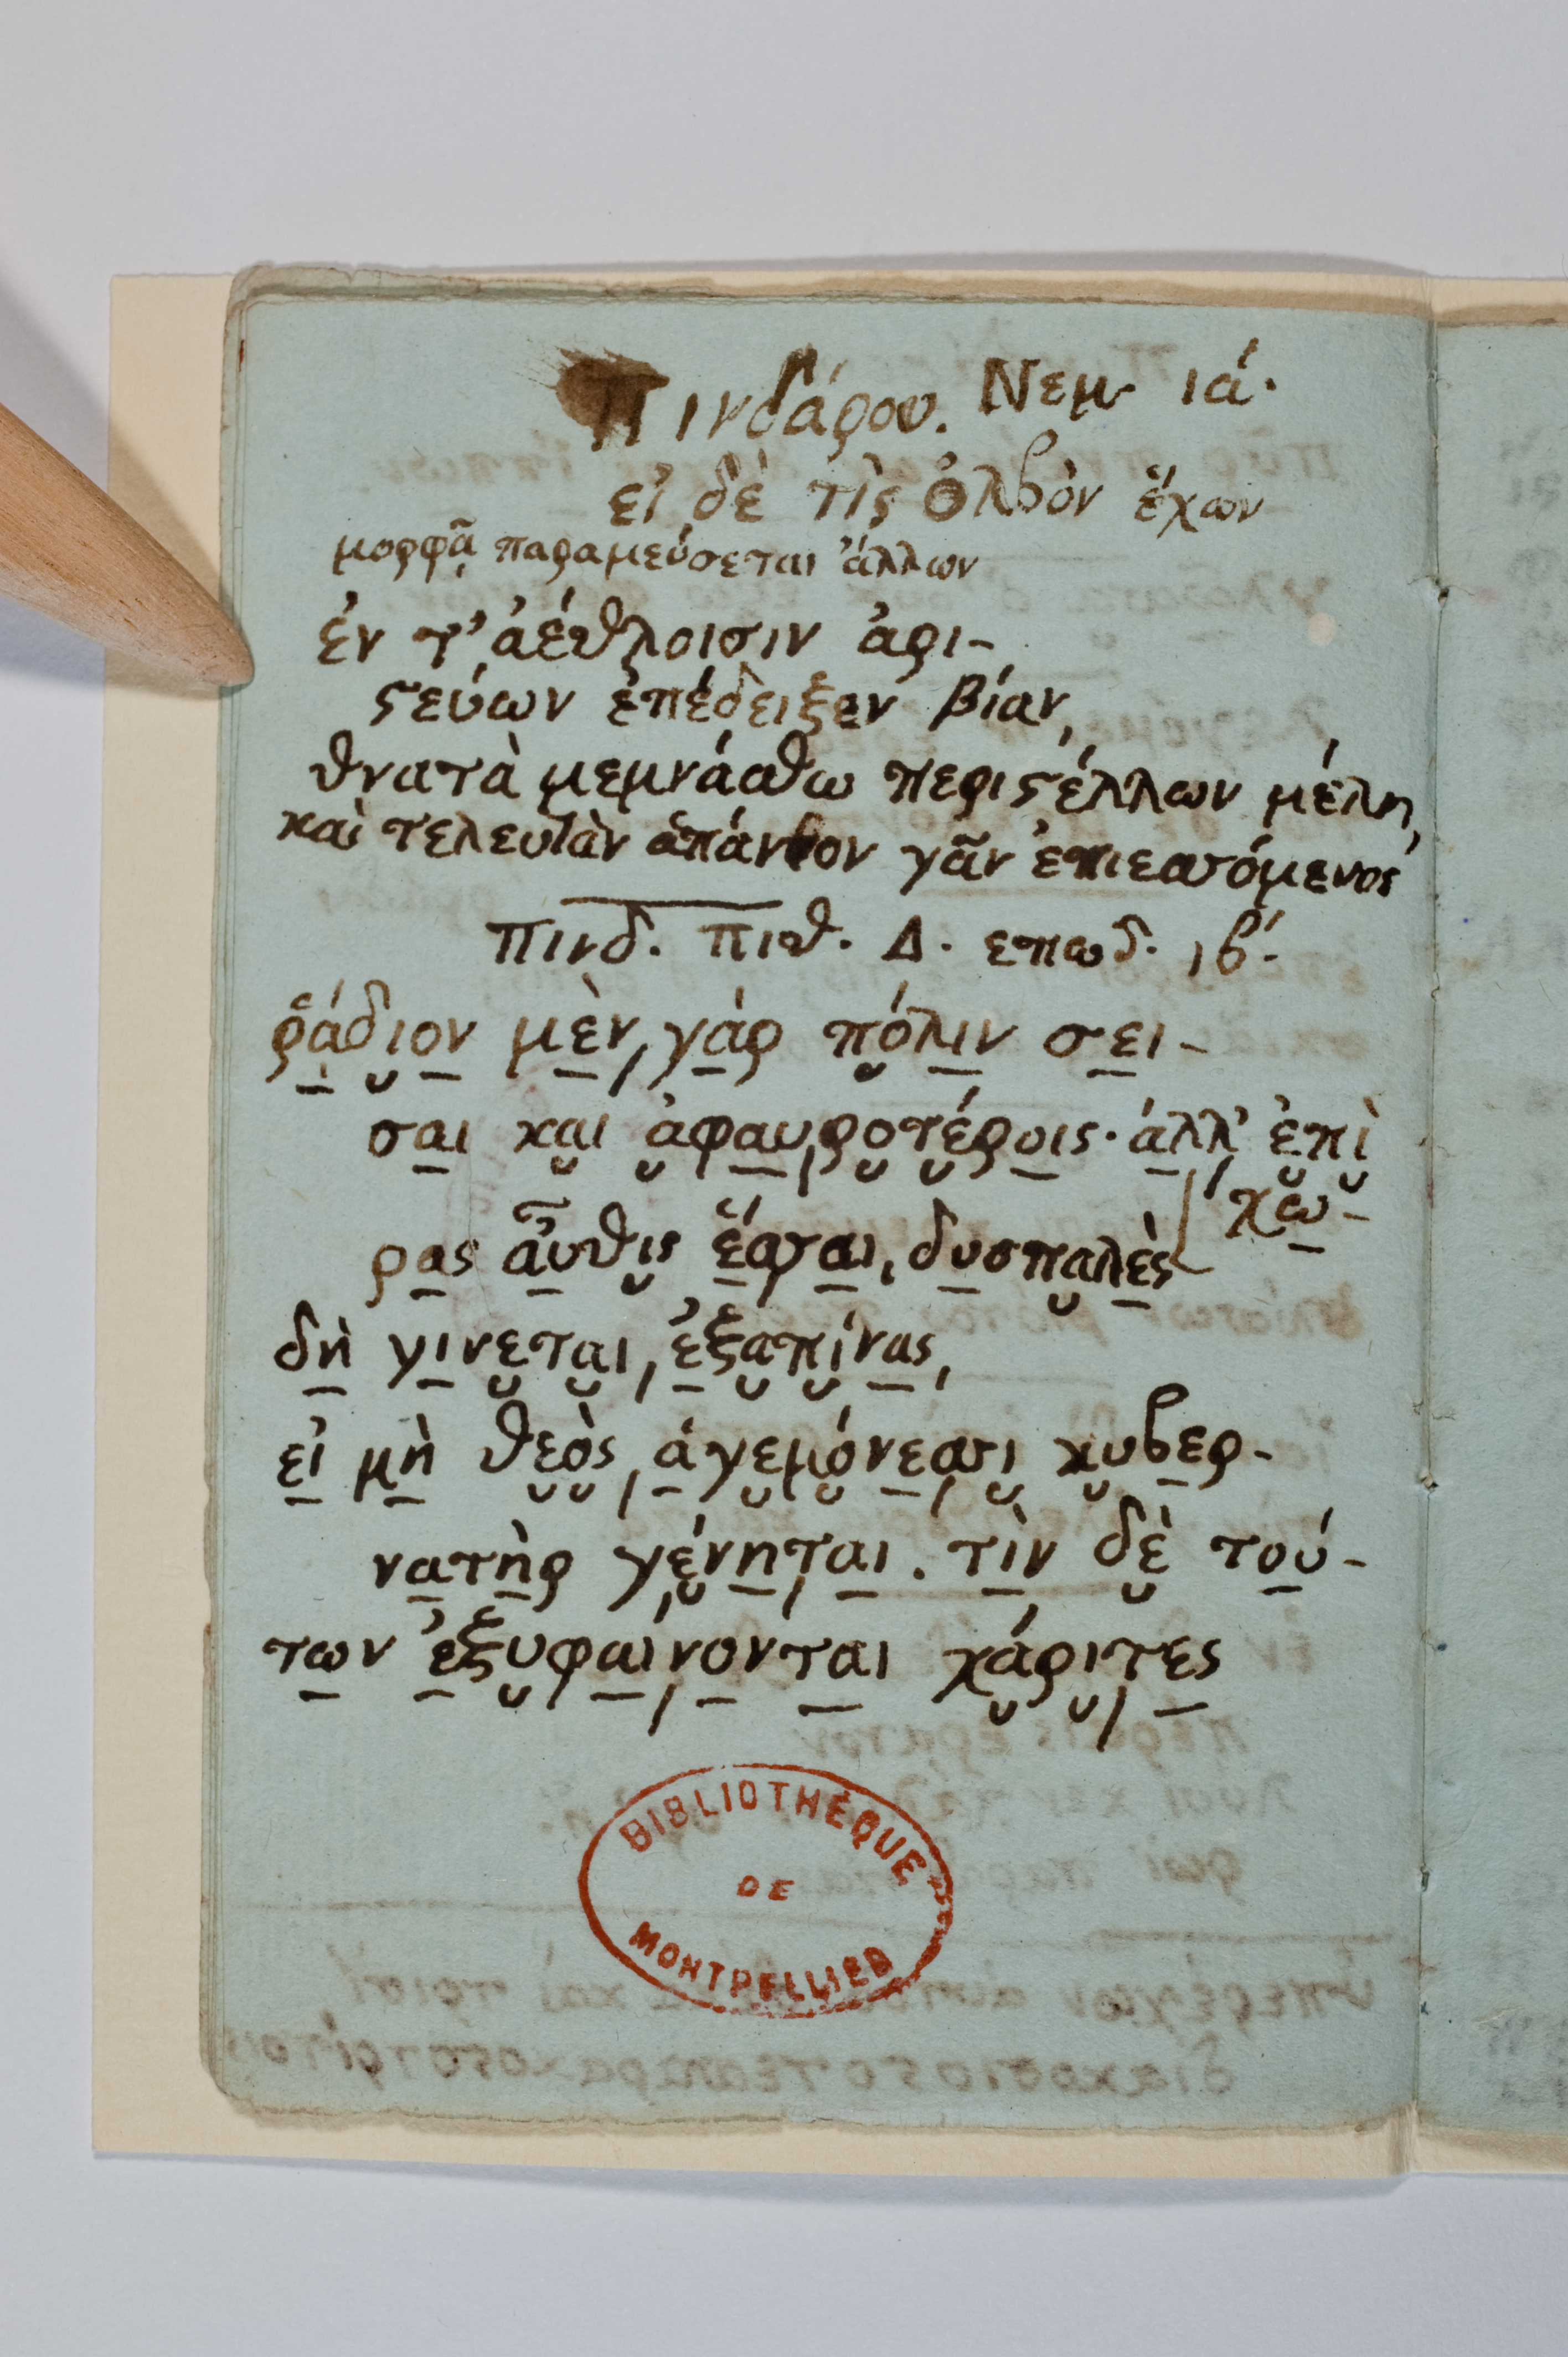 Πινδάρου. Νεμ. ιά.
εἰ δὲ τὶς ὄλβον ἔχων
μορφᾷ παραμεύσεται ἄλλων
ἔν τ' ἀέθλοισιν ἀρι-
ϛεύων ἐπέδειξεν βίαν,
θνατὰ μεμνάσθω περιϛέλλων μέλη,
καὶ τελευτὰν ἁπάντων γᾶν ἐπιεσσόμενος
Πινδ. πιθ. Δ. επωδ. ιβ'.
ῥάδιον μὲν γάρ πόλιν σει-
σαι και ἀφαυροτέροις· ἀλλ' ἐπὶ
χώ-
ρας αὖθις ἕσσαι, δυσπαλὲς
δὴ γίνεται, ἐξαπίνας,
εἰ μὴ θεὸς ἁγεμόνεσσι κυβερ-
νατὴρ γένηται. τὶν δὲ τού-
των ἐξυφαίνονται χάριτες
BIBLIOTHÈQUE
DE
MONTPELLIER